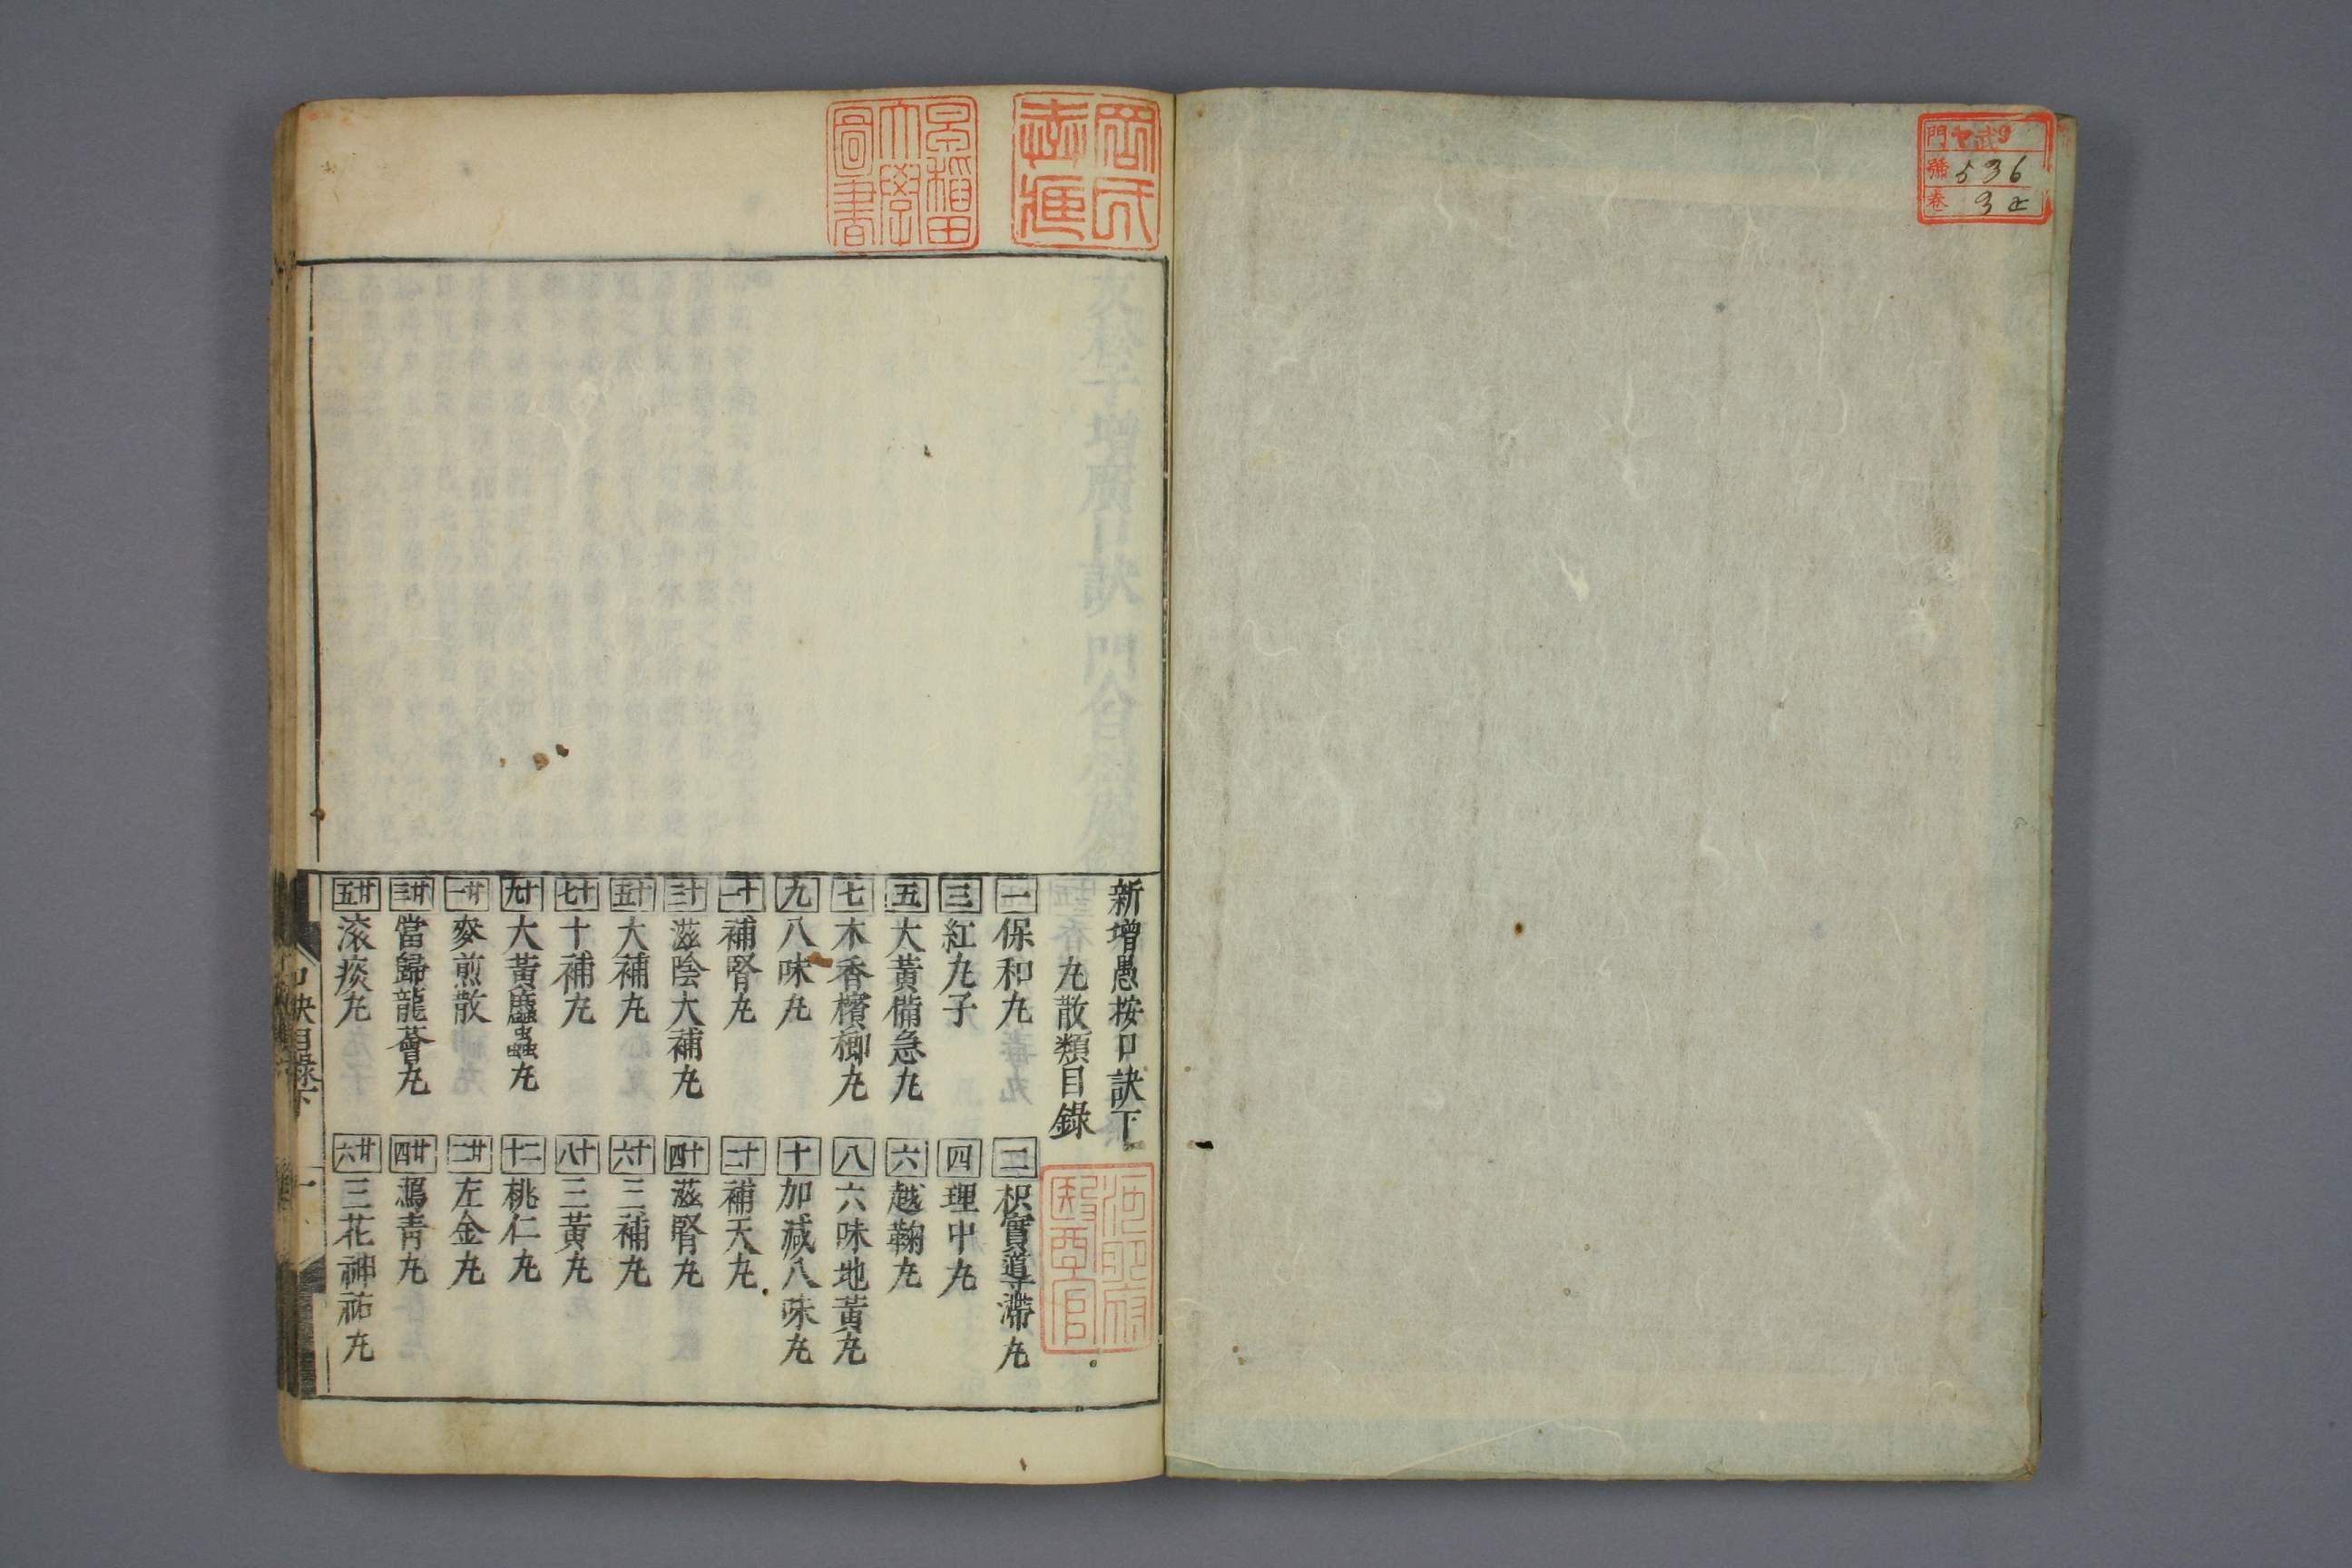 門 ヤ 9
號 536
卷 3
岡氏
志雄
早稻田
大學
圖書
新增愚按口訣下
丸散類目錄
一 保和丸 二 枳實導滯丸
三 紅丸子 四 理中丸
五 大黃備急丸 六 越鞠丸
七 木香檳榔丸 八 六味地黃丸
九 八味丸 十 加減八味丸
十一 補腎丸 十二 補天丸
十三 滋陰大補丸 十四 滋腎丸
十五 大補丸 十六 三補丸
十七 十補丸 十八 三黃丸
十九 大黃䗪蟲丸 二十 桃仁丸
廿一 麥煎散 廿二 左金丸
廿三 當歸龍薈丸 廿四 瀉青丸
廿五 滚痰丸 廿六 三花神祐丸
口訣目錄下 一
醫官